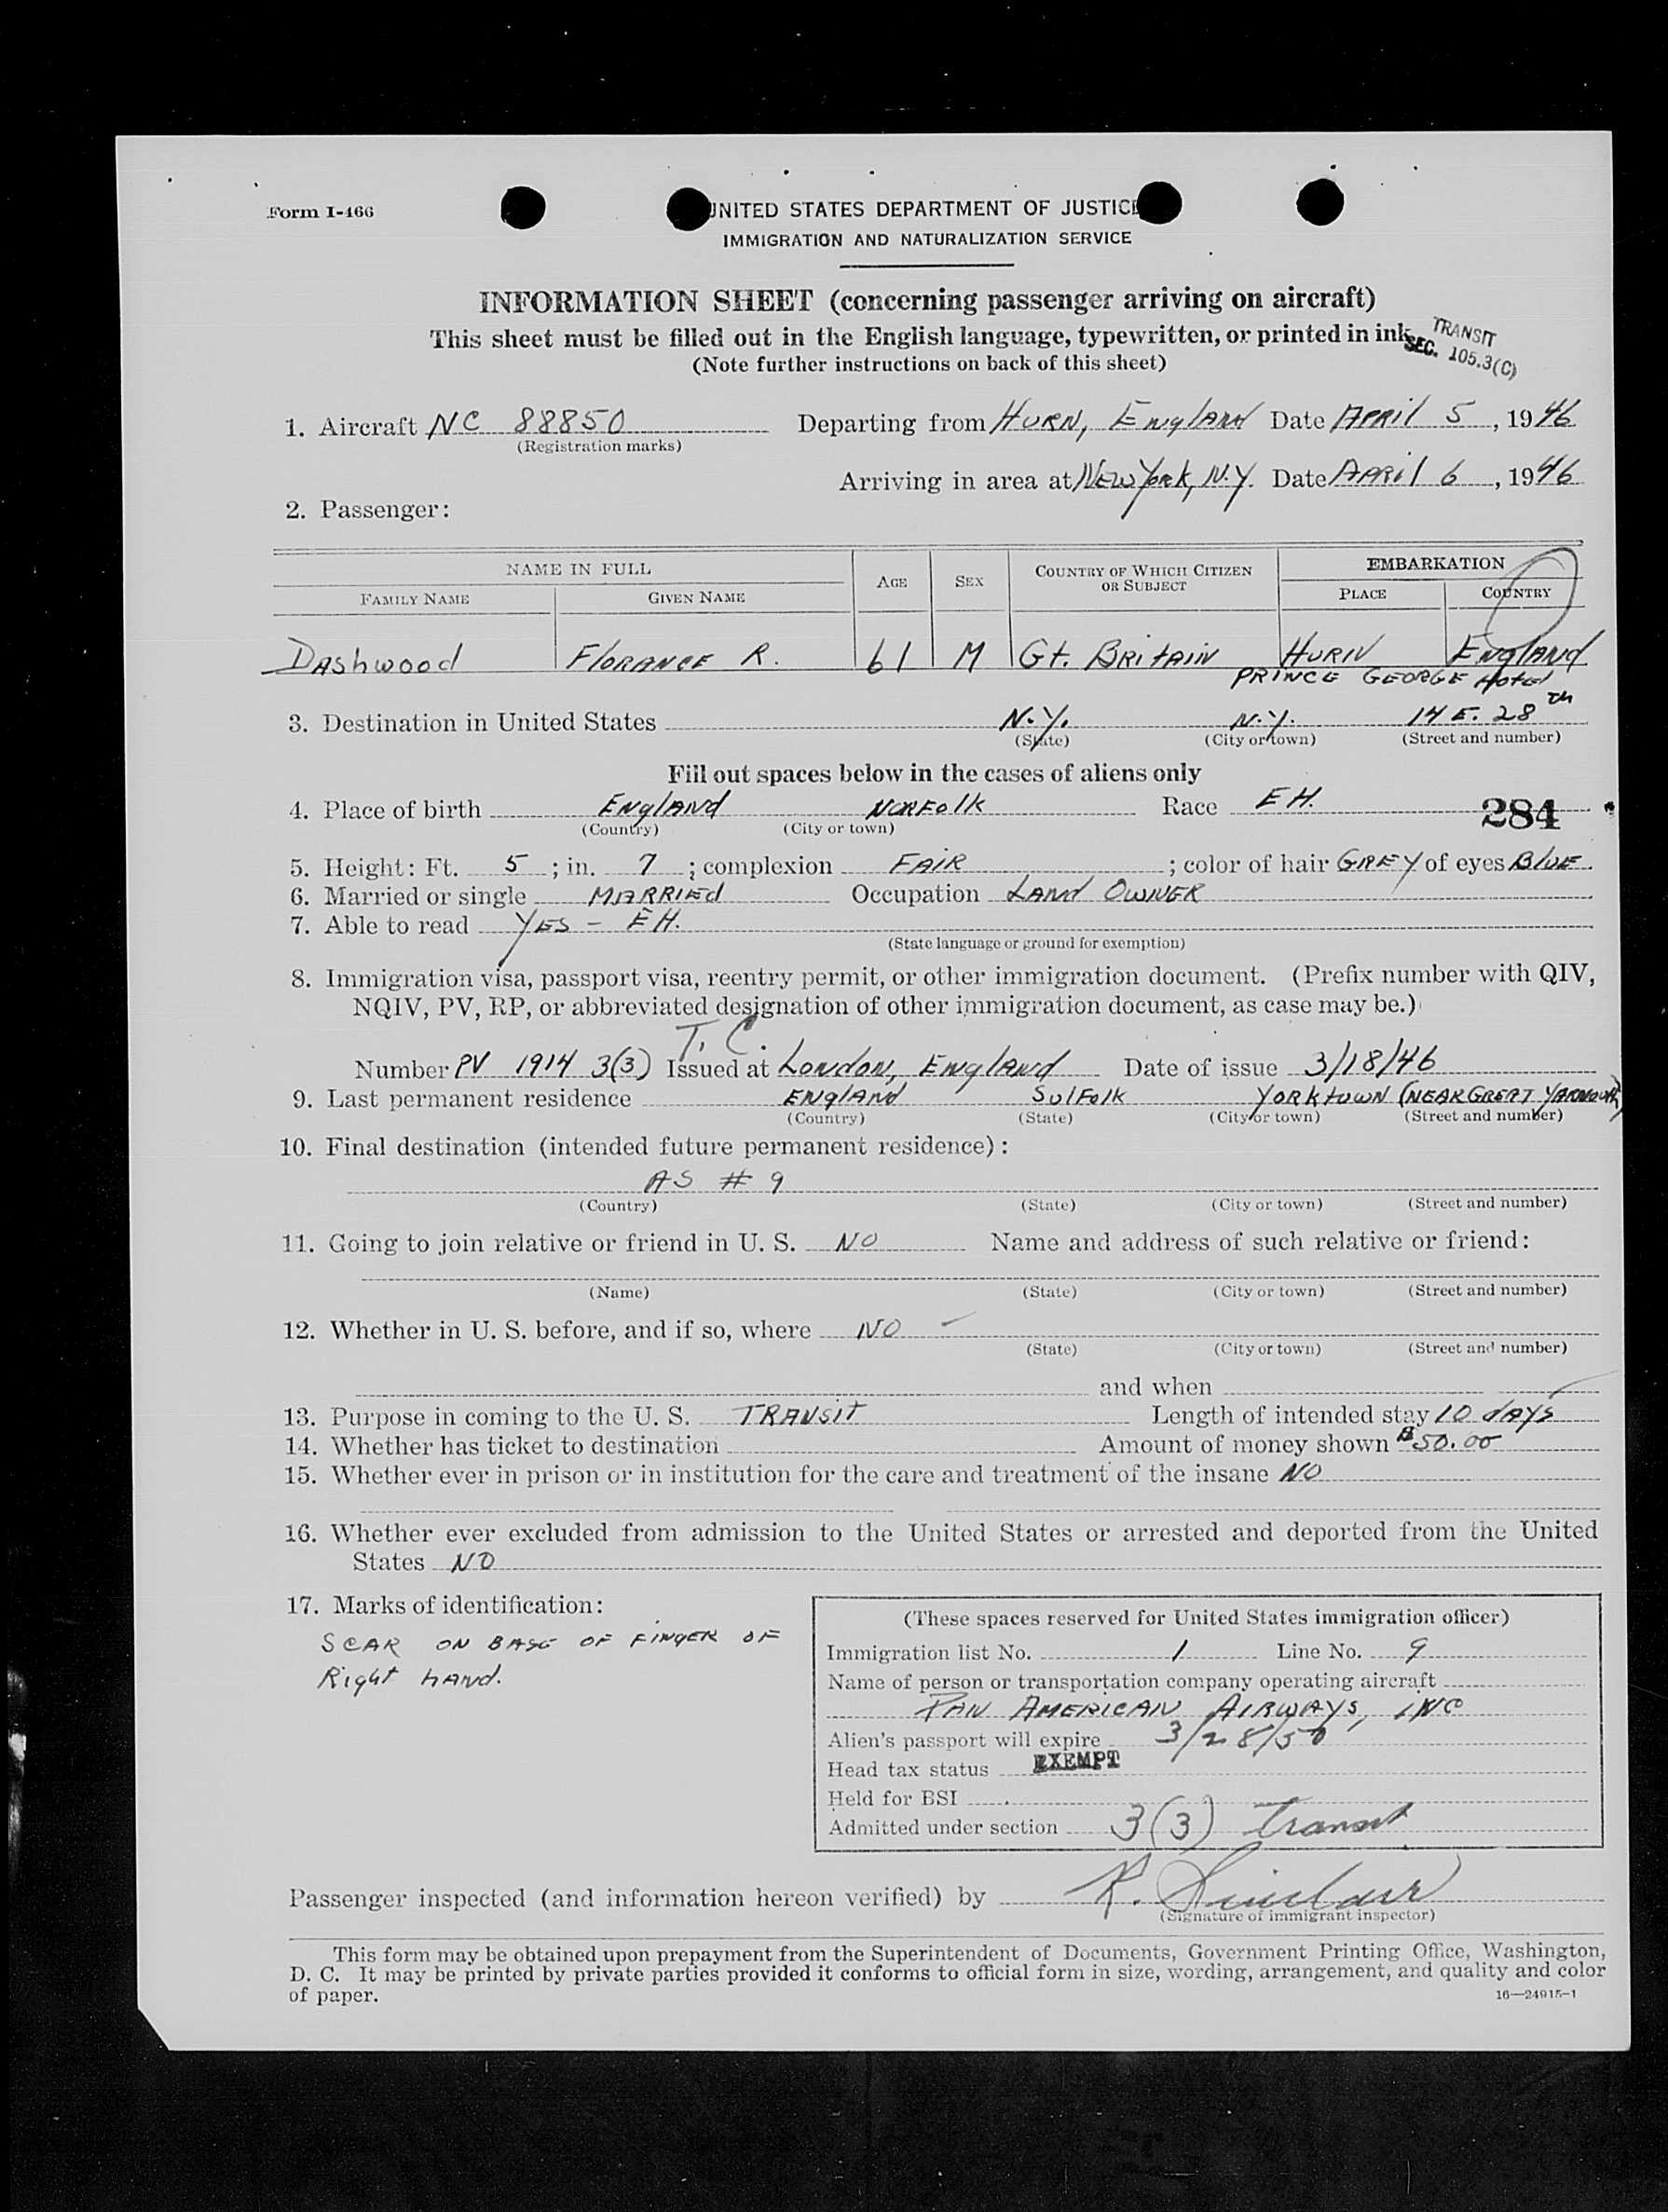 Form I-466
UNITED STATES DEPARTMENT OF JUSTICE
IMMIGRATION AND NATURALIZATION SERVICE
INFORMATION SHEET (concerning passenger arriving on aircraft)
This sheet must be filled out in the English language, typewritten, or printed in ink.
TRANSIT
SEC. 105.3(C)
(Note further instructions on back of this sheet)
1. Aircraft NC 88850 Departing from HURN, England Date APRil 5, 1946
(Registration marks)
Arriving in area at New York, N.Y. Date APRil 6, 1946
2. Passenger:
NAME IN FULL AGE SEX COUNTRY OF WHICH CITIZEN OR SUBJECT EMBARKATION
FAMILY NAME GIVEN NAME PLACE COUNTRY
Dashwood FlORANCE R. 61 M Gt. BRitAiN HURN ENglAND
PRINCE GEORGE Hotel
3. Destination in United States N.Y. N.Y. 14 E. 28th
(State) (City or town) (Street and number)
Fill out spaces below in the cases of aliens only
4. Place of birth ENglAND NORFolk Race EH. 284
(Country) (City or town)
5. Height: Ft. 5; in. 7; complexion FAIR; color of hair GREY of eyes BluE
6. Married or single MARRIEd Occupation LAND OWNER
7. Able to read YES - EH.
(State language or ground for exemption)
8. Immigration visa, passport visa, reentry permit, or other immigration document. (Prefix number with QIV,
NQIV, PV, RP, or abbreviated designation of other immigration document, as case may be.)
T. C.
Number PV 1914 3(3) Issued at London, ENglAND Date of issue 3/18/46
9. Last permanent residence ENglAND SulFolk YORKtowN (NEAR GREAT YARMOUTH)
(Country) (State) (City or town) (Street and number)
10. Final destination (intended future permanent residence):
AS # 9
(Country) (State) (City or town) (Street and number)
11. Going to join relative or friend in U. S. NO Name and address of such relative or friend:
(Name) (State) (City or town) (Street and number)
12. Whether in U. S. before, and if so, where NO
(State) (City or town) (Street and number)
and when
13. Purpose in coming to the U. S. TRANSIT Length of intended stay 10 dAYS
14. Whether has ticket to destination Amount of money shown $50.00
15. Whether ever in prison or in institution for the care and treatment of the insane NO
16. Whether ever excluded from admission to the United States or arrested and deported from the United
States NO
17. Marks of identification:
SCAR ON BASE OF FINGER OF
Right hAND.
(These spaces reserved for United States immigration officer)
Immigration list No. 1 Line No. 9
Name of person or transportation company operating aircraft
PAN AMERICAN AIRWAYS, INC
Alien's passport will expire 3/28/50
Head tax status EXEMPT
Held for BSI
Admitted under section 3(3) Transit
Passenger inspected (and information hereon verified) by R. Sinclair
(Signature of immigrant inspector)
This form may be obtained upon prepayment from the Superintendent of Documents, Government Printing Office, Washington,
D. C. It may be printed by private parties provided it conforms to official form in size, wording, arrangement, and quality and color
of paper.
16—24915-1